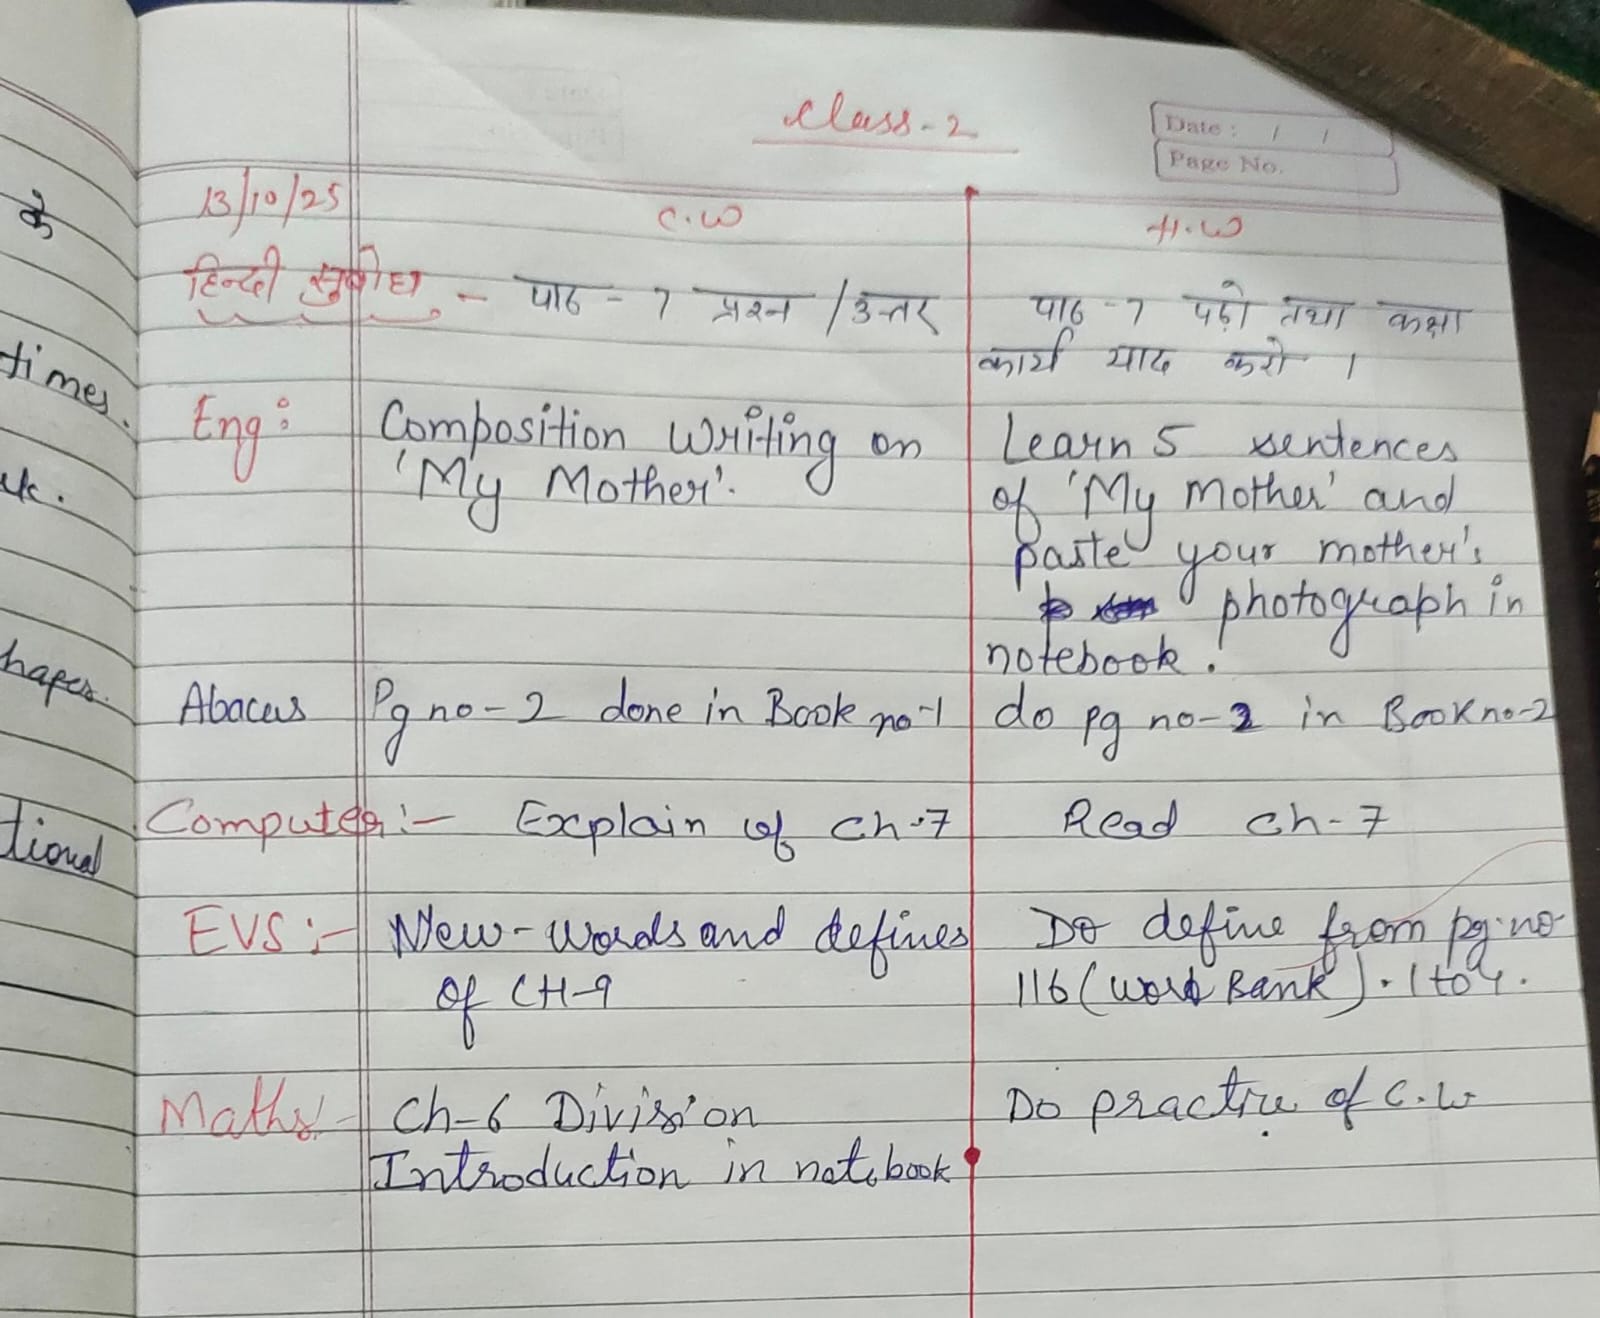 Class-2
Date : / /
Page No.
13/10/25
C.W
H.W
हिन्दी सुबोध - पाठ - 7 प्रश्न / उत्तर
पाठ -7 पढ़ो तथा कक्षा
कार्य याद करो ।
Eng:
Composition Writing on
'My Mother'.
Learn 5 sentences
of 'My Mother' and
paste your mother's
photograph in
notebook.
Abacus
Pg no-2 done in Book no-1
do pg no-2 in Book no-2
Computer:- Explain of Ch-7
Read Ch-7
EVS:- New-words and defines
of CH-9
Do define from pg.no
116 (Word Bank). 1 to 4.
Maths:- Ch-6 Division
Introduction in notebook
Do practice of C.W
के
times.
hapes.
tional